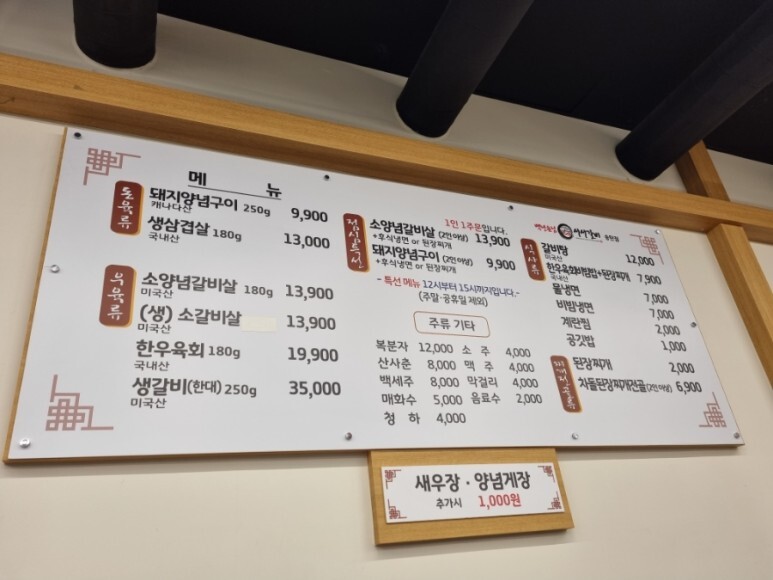 메 뉴
돈육류
돼지양념구이 250g 9,900
캐나다산
생삼겹살 180g 13,000
국내산
우육류
소양념갈비살 180g 13,900
미국산
(생) 소갈비살 13,900
미국산
한우육회 180g 19,900
국내산
생갈비(한대) 250g 35,000
미국산
점심특선
1인 1주문입니다.
소양념갈비살 (2인이상) 13,900
+후식냉면 or 된장찌개
돼지양념구이 (2인이상) 9,900
+후식냉면 or 된장찌개
- 특선 메뉴 12시부터 15시까지입니다.-
(주말·공휴일 제외)
주류 기타
복분자 12,000 소 주 4,000
산사춘 8,000 맥 주 4,000
백세주 8,000 막걸리 4,000
매화수 5,000 음료수 2,000
청 하 4,000
식사류
갈비탕 12,000
미국산
한우육회비빔밥+된장찌개 7,900
국내산
물냉면 7,000
비빔냉면 7,000
계란찜 2,000
공깃밥 1,000
찌개전골류
된장찌개 2,000
차돌된장찌개전골(2인이상) 6,900
새우장 · 양념게장
추가시 1,000원